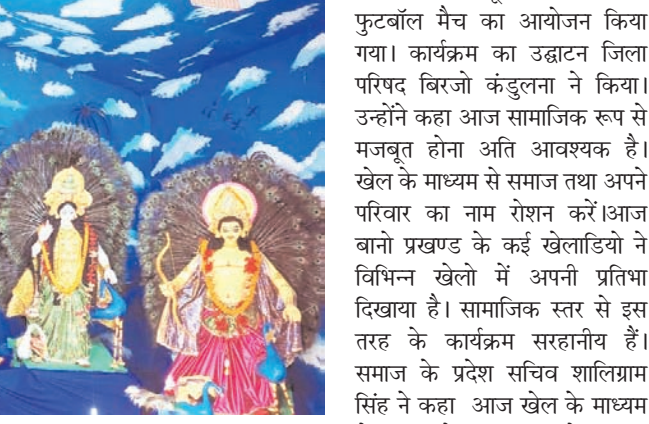 फुटबॉल मैच का आयोजन किया
गया। कार्यक्रम का उद्घाटन जिला
परिषद बिरजो कंडुलना ने किया।
उन्होंने कहा आज सामाजिक रूप से
मजबूत होना अति आवश्यक है।
खेल के माध्यम से समाज तथा अपने
परिवार का नाम रोशन करें।आज
बानो प्रखण्ड के कई खेलाडियो ने
विभिन्न खेलो में अपनी प्रतिभा
दिखाया है। सामाजिक स्तर से इस
तरह के कार्यक्रम सरहानीय हैं।
समाज के प्रदेश सचिव शालिग्राम
सिंह ने कहा आज खेल के माध्यम